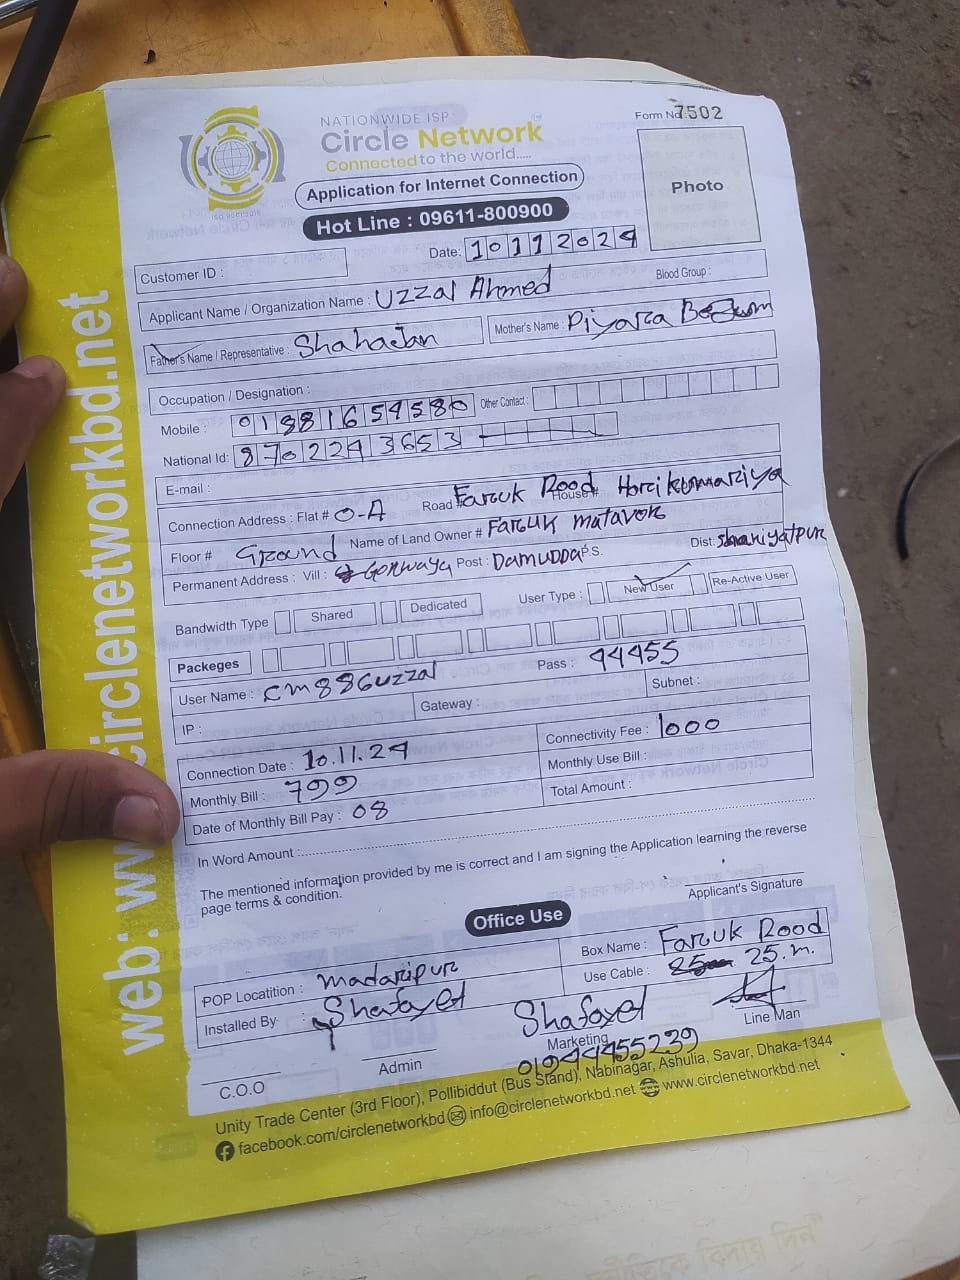 NATIONWIDE ISP
Circle Network
Connected to the world.....
Form No 7502
Photo
Application for Internet Connection
Hot Line : 09611-800900
Date: 10112024
Customer ID :
Applicant Name / Organization Name : Uzzal Ahmed Blood Group :
Father's Name / Representative : Shahajan Mother's Name : Piyara Begum
Occupation / Designation :
Mobile : 01881654580 Other Contact :
National Id: 8702243653
E-mail :
Connection Address : Flat # O-A Road # Farouk Rood House # Horikumariya
Floor # Ground Name of Land Owner # Farouk matavor
Permanent Address : Vill : Gonwaya Post : Damudda P.S. Dist: Shariyatpur
Bandwidth Type Shared Dedicated User Type : New User Re-Active User
Packeges
User Name : cm886uzzal Pass : 44455
IP : Gateway : Subnet :
Connection Date : 10.11.24 Connectivity Fee : 1000
Monthly Bill : 799 Monthly Use Bill :
Date of Monthly Bill Pay : 08 Total Amount :
In Word Amount :
The mentioned information provided by me is correct and I am signing the Application learning the reverse
page terms & condition.
Applicant's Signature
Office Use
POP Locatition : madaripur Box Name : Farouk Rood
Installed By : Shafayet Use Cable : 25.m.
Shafayet
C.O.O Admin Marketing Line Man
01944455239
Unity Trade Center (3rd Floor), Pollibiddut (Bus Stand), Nabinagar, Ashulia, Savar, Dhaka-1344
facebook.com/circlenetworkbd info@circlenetworkbd.net www.circlenetworkbd.net
web: www.circlenetworkbd.net